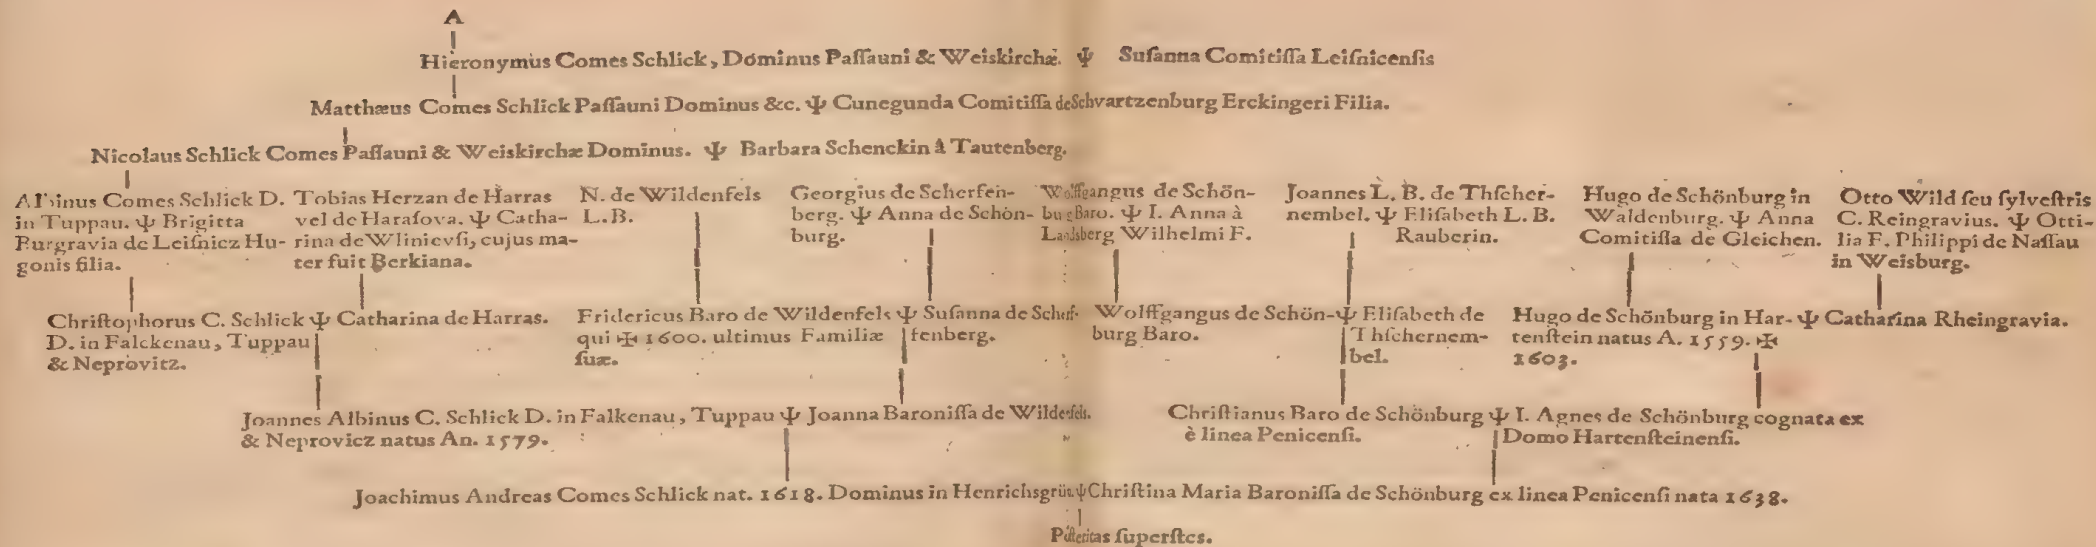 A
Hieronymus Comes Schlick, Dominus Paſſauni & Weiskirchæ. Ψ Suſanna Comitiſſa Leiſnicenſis
Matthæus Comes Schlick Paſſauni Dominus &c. Ψ Cunegunda Comitiſſa de Schvartzenburg Erckingeri Filia.
Nicolaus Schlick Comes Paſſauni & Weiskirchæ Dominus. Ψ Barbara Schenckin â Tautenberg.
Albinus Comes Schlick D.
in Tuppau. Ψ Brigitta
Burgravia de Leiſnicz Hu-
gonis filia.
Tobias Herzan de Harras
vel de Haraſova. Ψ Catha-
rina de Wlinievſi, cujus ma-
ter fuit Berkiana.
N. de Wildenfels
L. B.
Georgius de Scherfen-
berg. Ψ Anna de Schön-
burg.
Wolffgangus de Schön-
burg Baro. Ψ I. Anna à
Landsberg Wilhelmi F.
Joannes L. B. de Thſcher-
nembel. Ψ Eliſabeth L. B.
Rauberin.
Hugo de Schönburg in
Waldenburg. Ψ Anna
Comitiſſa de Gleichen.
Otto Wild ſeu ſylveſtris
C. Reingravius. Ψ Otti-
lia F. Philippi de Naſſau
in Weisburg.
Chriſtophorus C. Schlick Ψ Catharina de Harras.
D. in Falckenau, Tuppau
& Neprovitz.
Fridericus Baro de Wildenfels Ψ Suſanna de Scherf-
qui ✠ 1600. ultimus Familiæ fenberg.
ſuæ.
Wolffgangus de Schön- Ψ Eliſabeth de
burg Baro. Thſchernem-
bel.
Hugo de Schönburg in Har- Ψ Catharina Rheingravia.
tenſtein natus A. 1559. ✠
1603.
Joannes Albinus C. Schlick D. in Falkenau, Tuppau Ψ Joanna Baroniſſa de Wildenfels.
& Neprovicz natus An. 1579.
Chriſtianus Baro de Schönburg Ψ I. Agnes de Schönburg cognata ex
è linea Penicenſi. Domo Hartenſteinenſi.
Joachimus Andreas Comes Schlick nat. 1618. Dominus in Henrichsgrün. Ψ Chriſtina Maria Baroniſſa de Schönburg ex linea Penicenſi nata 1638.
Poſteritas ſuperſtes.